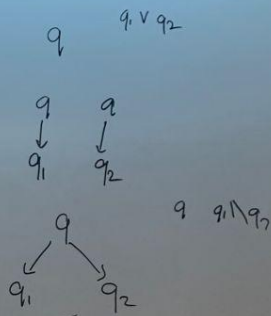 q q₁ ∨ q₂
q q
q₁ q₂
q q q₁ ∧ q₂
q₁ q₂